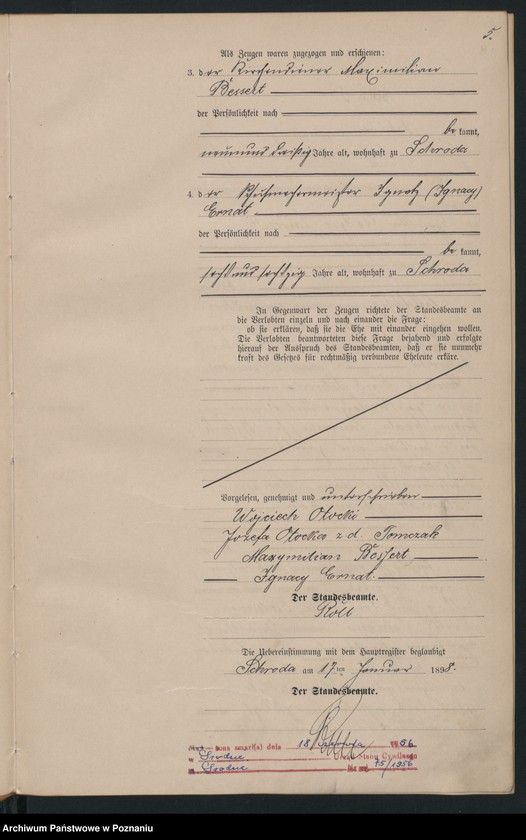 5.
Als Zeugen waren zugezogen und erschienen:
3. der Kirchendiener Maximilian
Bessert
der Persönlichkeit nach
be kannt,
neununddreißig Jahre alt, wohnhaft zu Schroda
4. der Schuhmachermeister Ignatz (Ignacy)
Ernat
der Persönlichkeit nach
be kannt,
sechsundsechzig Jahre alt, wohnhaft zu Schroda
In Gegenwart der Zeugen richtete der Standesbeamte an
die Verlobten einzeln und nach einander die Frage:
ob sie erklären, daß sie die Ehe mit einander eingehen wollen.
Die Verlobten beantworteten diese Frage bejahend und erfolgte
hierauf der Ausspruch des Standesbeamten, daß er sie nunmehr
kraft des Gesetzes für rechtmäßig verbundene Eheleute erkläre.
Vorgelesen, genehmigt und unterschrieben
Wojciech Otocki
Józefa Otocka z d. Tomczak
Maxymilian Bessert
Ignacy Ernat.
Der Standesbeamte.
Röll
Die Uebereinstimmung mit dem Hauptregister beglaubigt
Schroda am 17ten Januar 1898.
Der Standesbeamte.
Röll
zmarł(a) dnia 18 1956
w Środzie Urząd Stanu Cywilnego
w Środzie Nr 75/1956
Archiwum Państwowe w Poznaniu